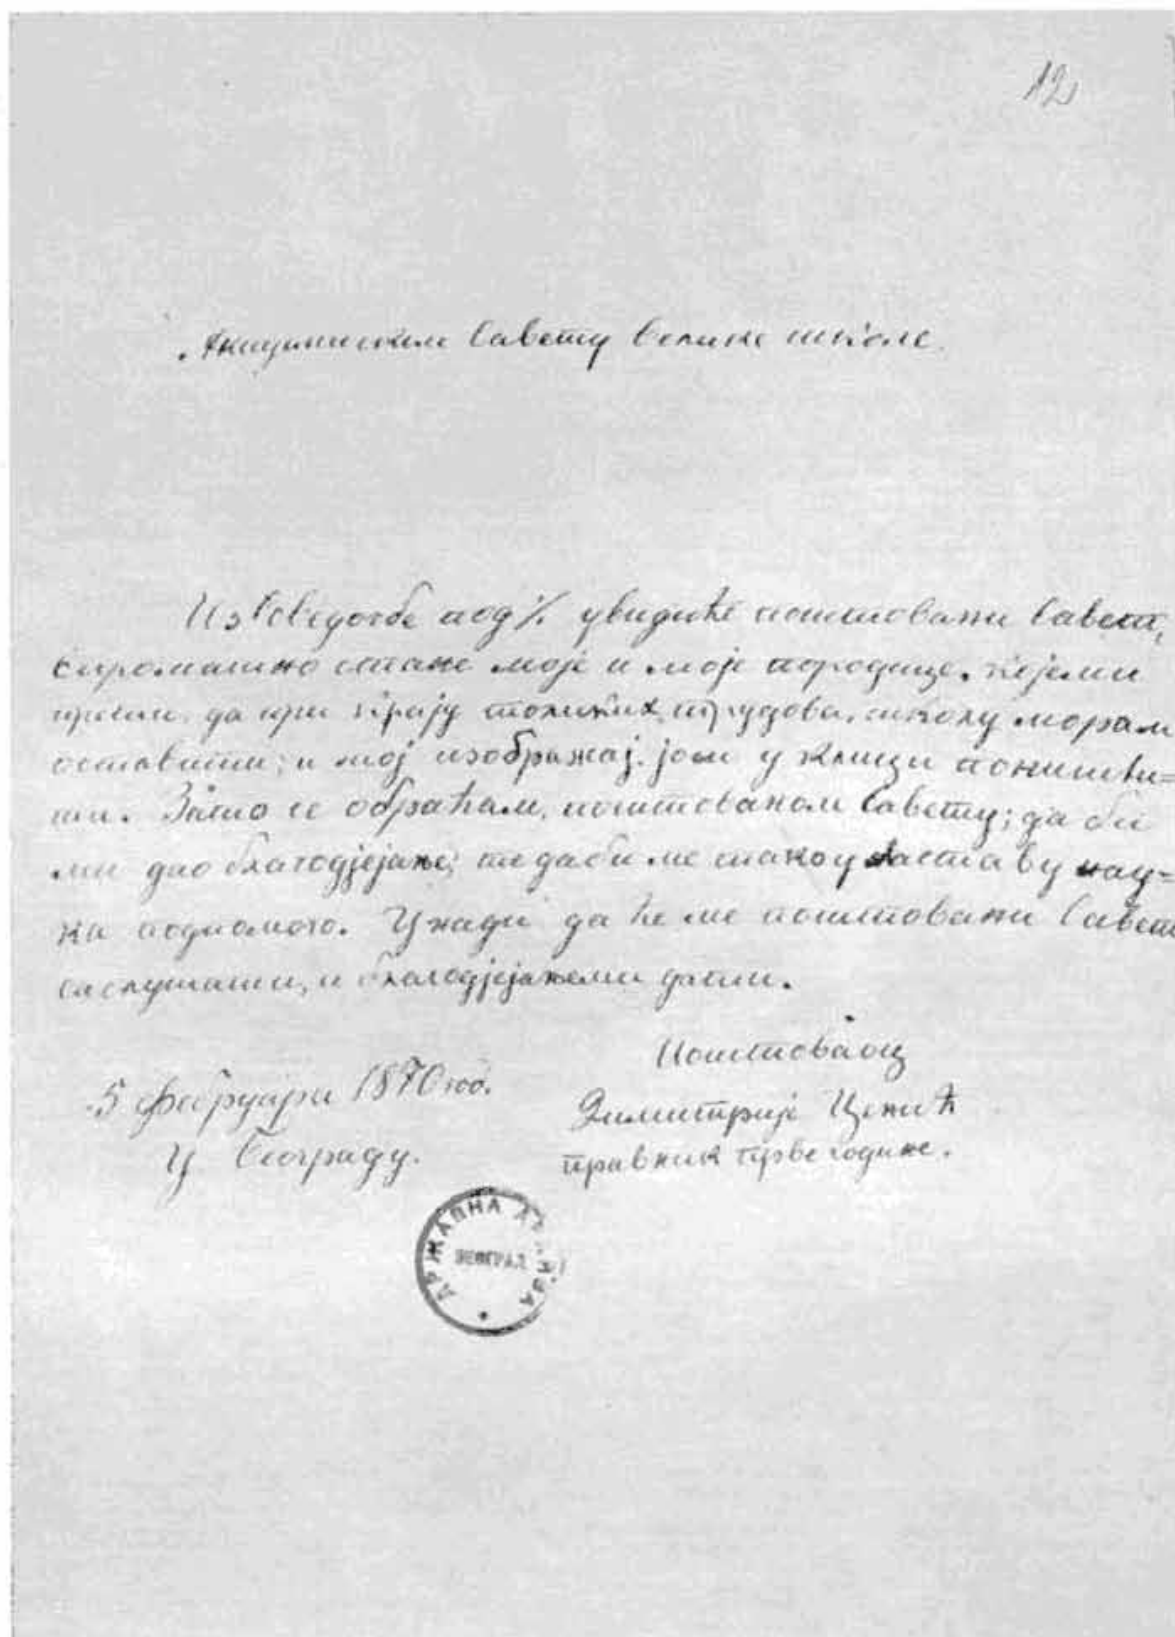 12
Академиском Савету велике школе.
Из Сведочбе под ·/. увидиће поштовани Савет,
сиромашно стање моје и моје породице, које ми
прети, да при крају толиких трудова, школу морам
оставити; и мој изображај још у клици поништи=
ти. Зато се обраћам, поштованом Савету; да би
ми дао благодјејање; те да би ме тако у наставу нау=
ка подпомого. У нади да ће ме поштовани Савет
саслушати, и благодјејање ми дати.
Поштоваоц
5 фебруара 1870 год.
Димитрије Ценић
У Београду.
правник прве године.
ДРЖАВНА АРХИВА
БЕОГРАД